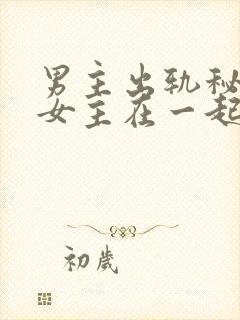 男主出轨秘
女主在一起
初岁